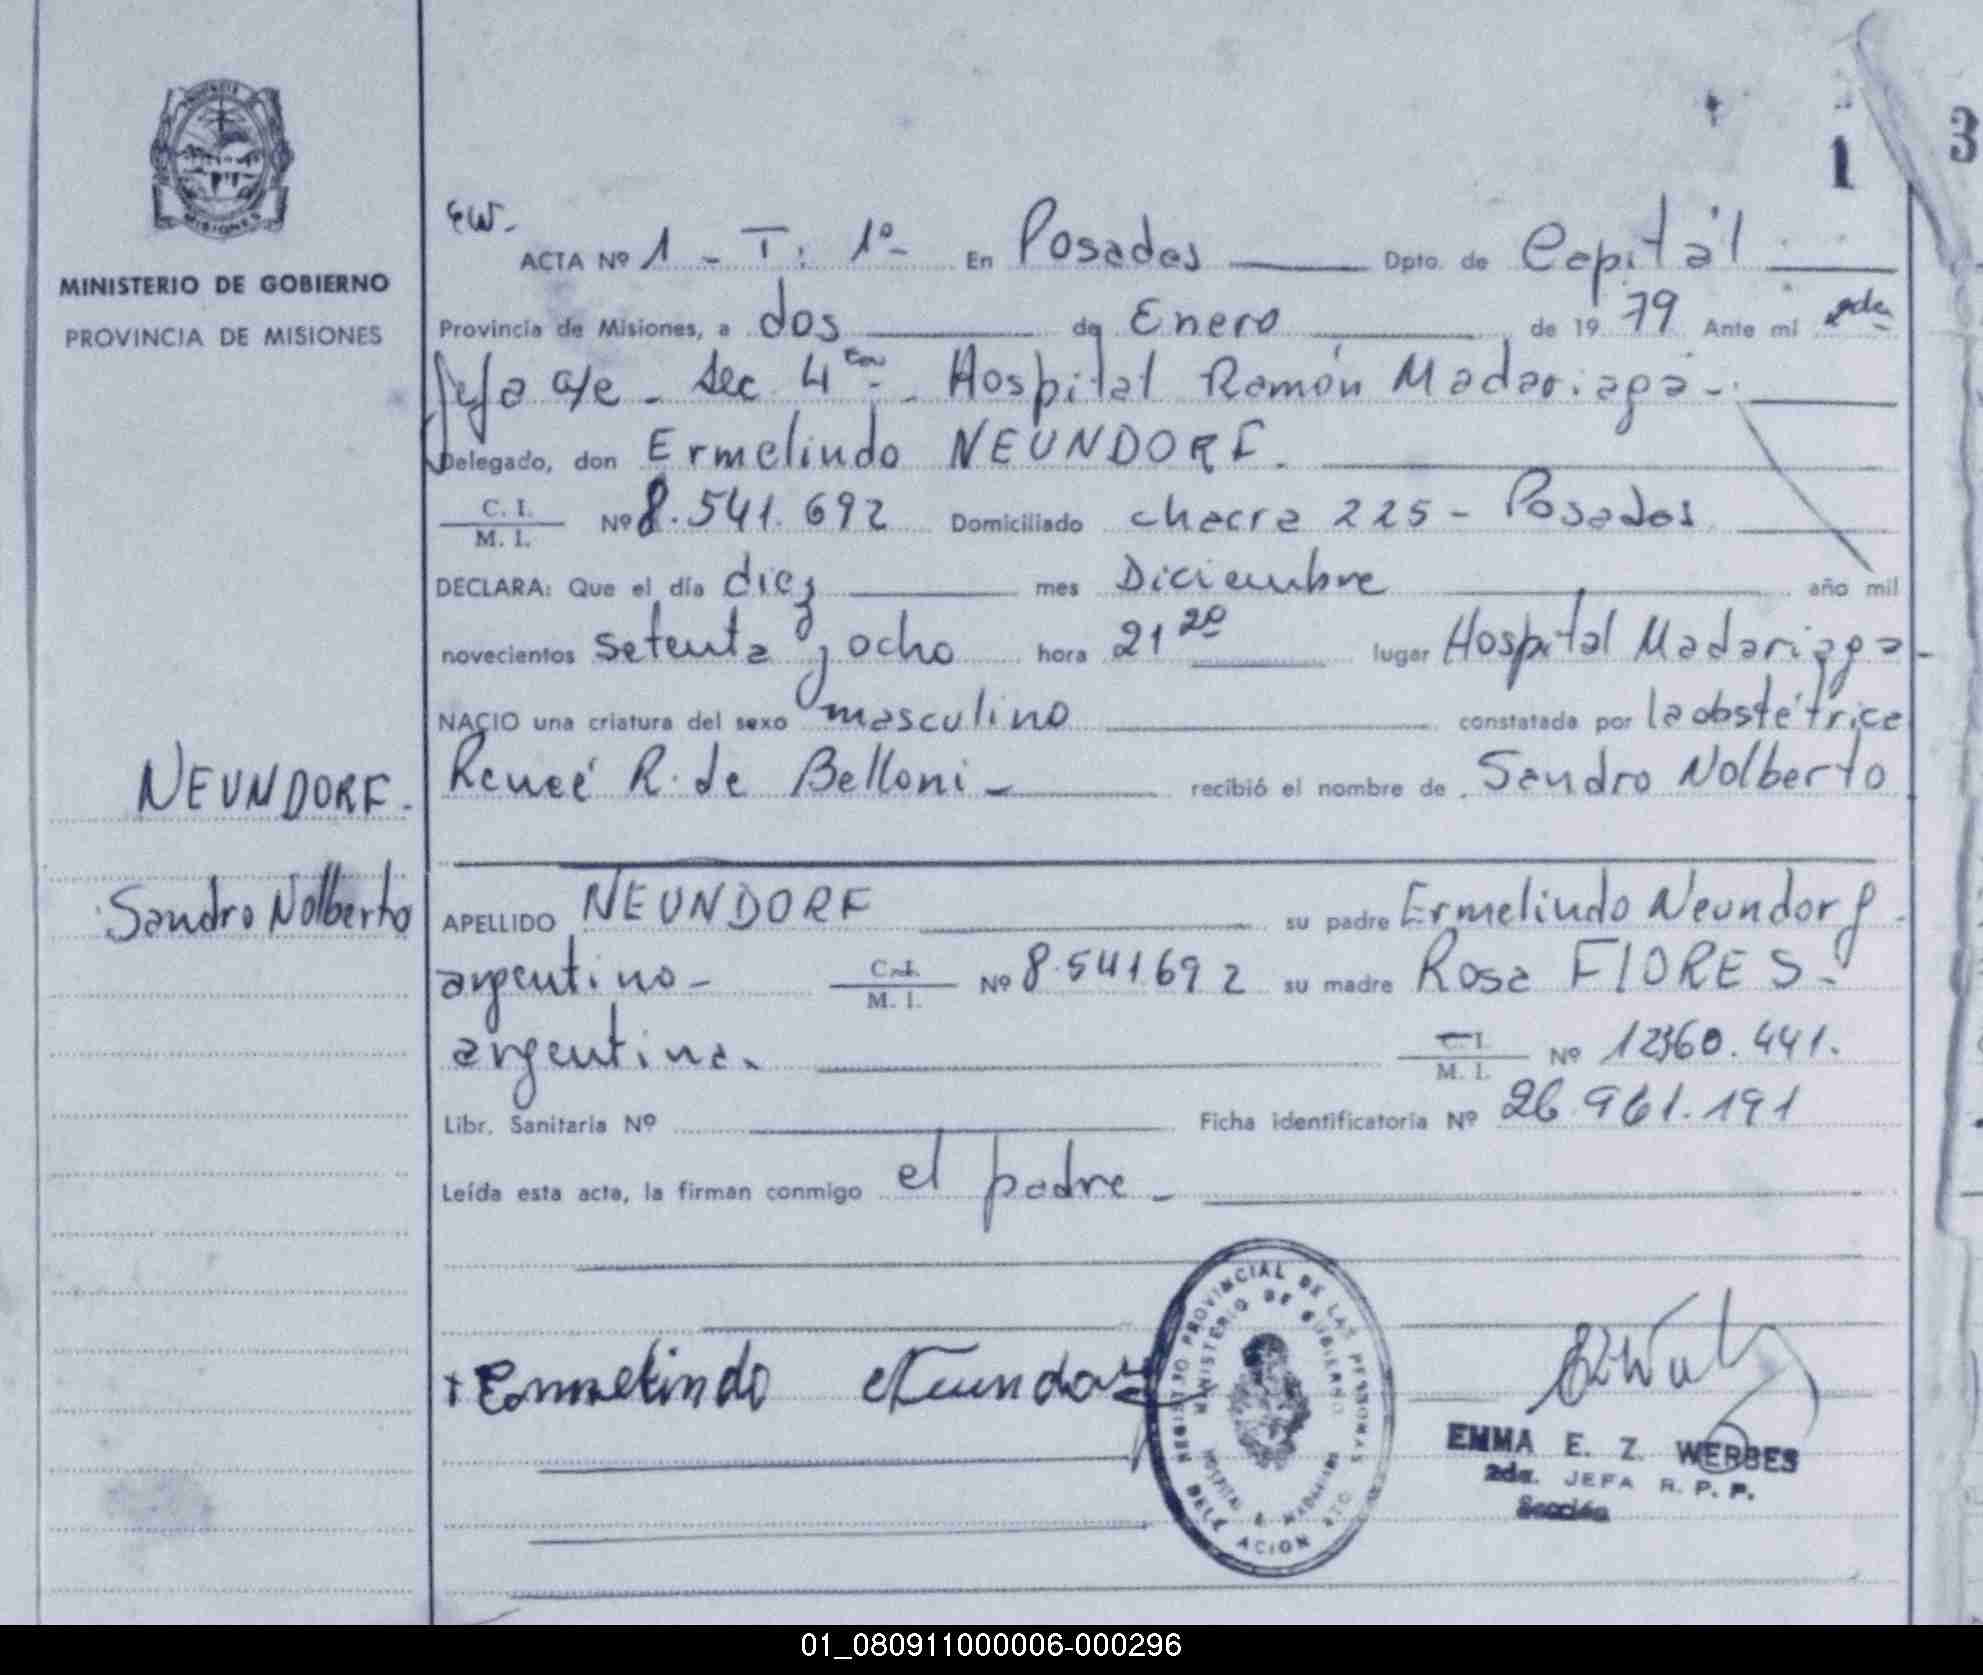 MISIONES
MINISTERIO DE GOBIERNO
PROVINCIA DE MISIONES
NEUNDORF.
Sandro Nolberto
1
3
EW.
ACTA Nº 1 - T: 1º - En Posadas Dpto. de Capital
Provincia de Misiones, a dos de Enero de 1979 Ante mí 2da
Jefa a/e - Sec 4ta - Hospital Ramón Madariaga -
Delegado, don Ermelindo NEUNDORF.
C. I. / M. I. Nº 8.541.692 Domiciliado chacra 225 - Posadas
DECLARA: Que el día diez mes Diciembre año mil
novecientos setenta y ocho hora 21 20 lugar Hospital Madariaga -
NACIO una criatura del sexo masculino constatada por la obstétrice
Reneé R. de Belloni - recibió el nombre de Sandro Nolberto
APELLIDO NEUNDORF su padre Ermelindo Neundorf -
argentino - C. I. / M. I. Nº 8.541692 su madre Rosa FLORES -
argentina. C. I. / M. I. Nº 12360.441.
Libr. Sanitaria Nº Ficha identificatoria Nº 26.961.191
Leída esta acta, la firman conmigo el padre -
+ Ermelindo Neundorf
REGISTRO PROVINCIAL DE LAS PERSONAS
MINISTERIO DE GOBIERNO
HOSPITAL R. MADARIAGA
DELEGACION
EMMA E. Z. WERBES
2da. JEFA R. P. P.
Sección
01_080911000006-000296